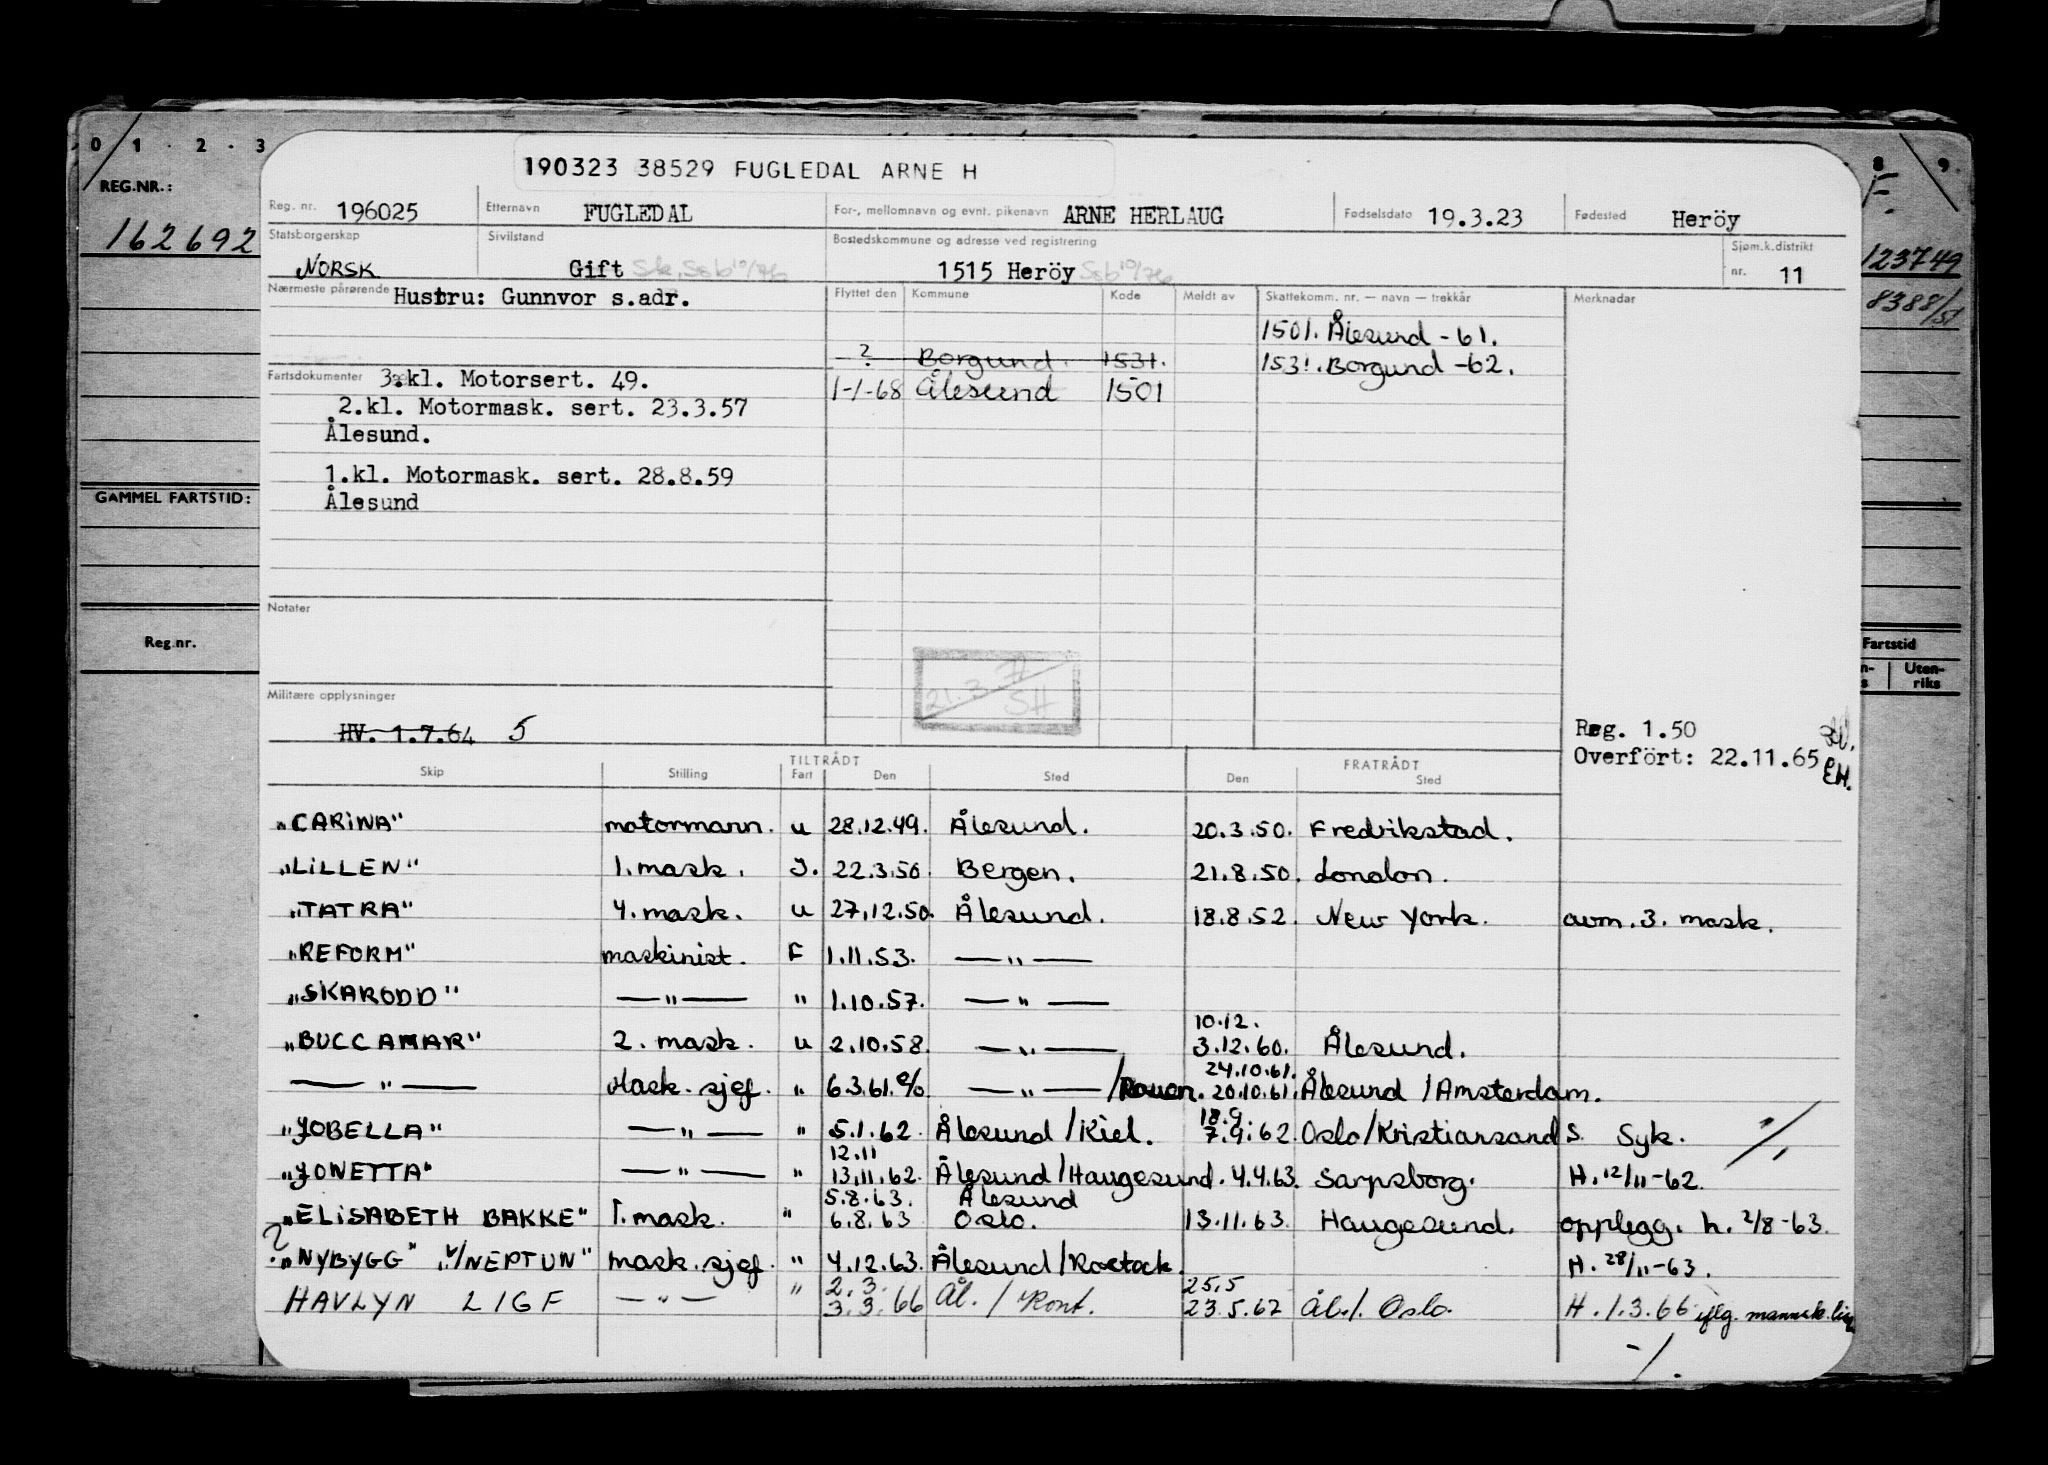 0 1 . 2 . 3
8 9.
REG.NR.:
162692
GAMMEL FARTSTID:
Reg.nr.
F.
123749
8388/51
Fartstid
Uten-
riks
190323 38529 FUGLEDAL ARNE H
Reg. nr. 196025 Etternavn FUGLEDAL For-, mellomnavn og evnt. pikenavn ARNE HERLAUG Fødselsdato 19.3.23 Fødested Heröy
Statsborgerskap NORSK Sivilstand Gift Bostedskommune og adresse ved registrering 1515 Heröy Sjøm.k.distrikt nr. 11
Nærmeste pårørende Hustru: Gunnvor s.adr.
Flyttet den Kommune Kode Meldt av Skattekomm. nr. — navn — trekkår Merknader
1501. Ålesund -61.
? Borgund. 1531. 1531. Borgund -62.
1-1-68 Ålesund 1501
Fartsdokumenter 3.kl. Motorsert. 49.
2.kl. Motormask. sert. 23.3.57
Ålesund.
1.kl. Motormask. sert. 28.8.59
Ålesund
Notater
21.3 72
SH
Militære opplysninger
HV. 1.7.64 5
Reg. 1.50
Overfört: 22.11.65 EH.
TILTRÅDT FRATRÅDT
Skip Stilling Fart Den Sted Den Sted
"CARINA" motormann. u 28.12.49. Ålesund. 20.3.50. Fredrikstad.
"LILLEN" 1. mask. J. 22.3.50. Bergen. 21.8.50. London.
"TATRA" 4. mask. u 27.12.50. Ålesund. 18.8.52. New York. avm. 3. mask.
"REFORM" maskinist. F 1.11.53. — " —
"SKARODD" — " — " 1.10.57. — " —
10.12.
"BUCCAMAR" 2. mask. u 2.10.58. — " — 3.12.60. Ålesund.
24.10.61.
— " — Mask. sjef. " 6.3.61. 9/0 — " — / Rouen. 20.10.61. Ålesund / Amsterdam.
18.9.
"JOBELLA" — " — " 5.1.62 Ålesund / Kiel. 7.9.62. Oslo/Kristiansand S. Syk. "/,
12.11
"JONETTA" — " — " 13.11.62. Ålesund / Haugesund. 4.4.63. Sarpsborg. H. 12/11-62.
5.8.63. Ålesund
"ELISABETH BAKKE" 1. mask. " 6.8.63 Oslo. 13.11.63. Haugesund. opplegg. h. 2/8-63.
2
"NYBYGG" "v/NEPTUN" mask. sjef. " 4.12.63. Ålesund / Rostock. H. 28/11-63.
2.3. 25.5
HAVLYN LIGF — " — " 3.3.66 Ål. / Kont. 23.5.67 Ål./. Oslo. H. 1.3.66 iflg. mannsk. liste
-/.